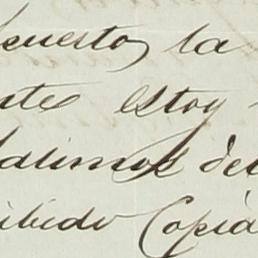 cuesto la
nte estoy
alimos del
ibido Copia